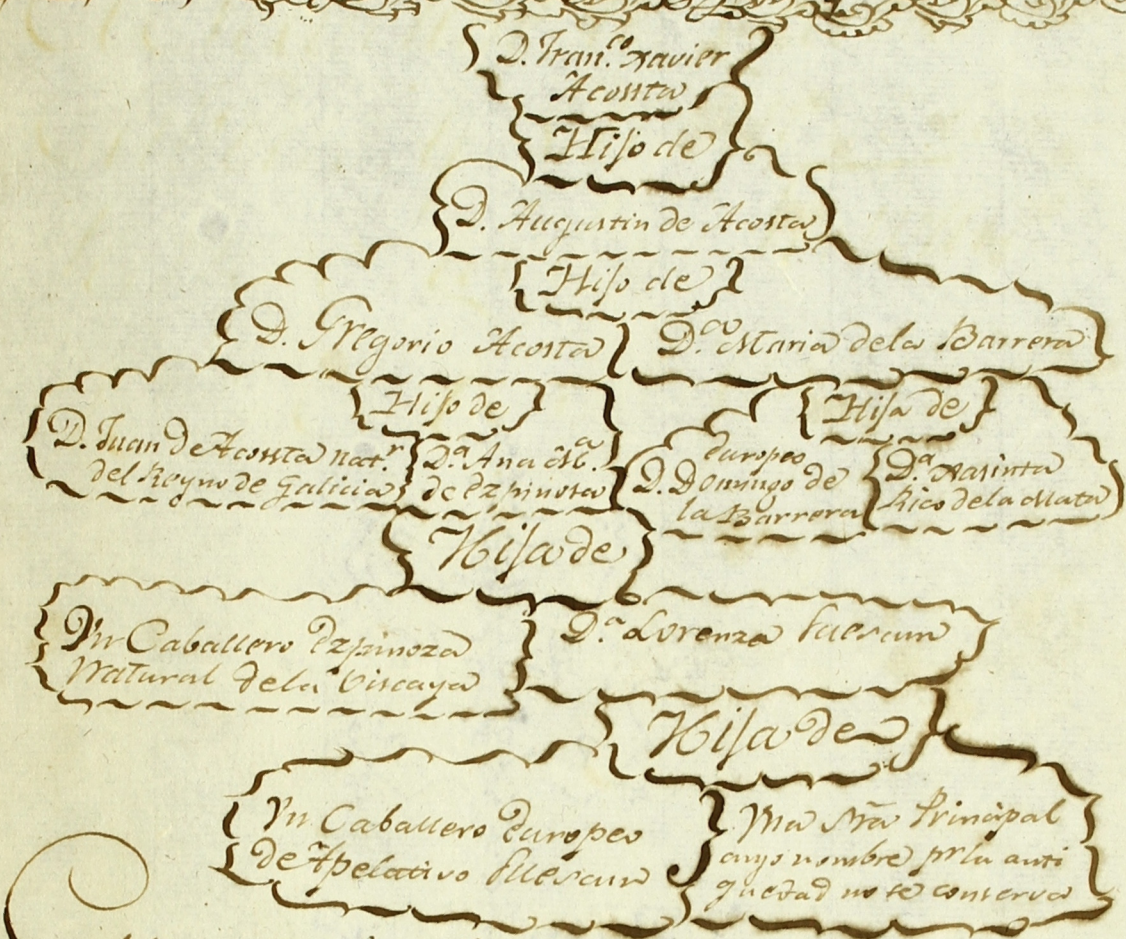 D. Fran.co Xavier
Acossta
Hijo de
D. Augustin de Acosta
Hijo de
D. Gregorio Acosta
D.a Maria dela Barrera
Hijo de
Hija de
D. Juan de Acossta nat.r
del Reyno de Galicia
D.a Ana M.a
de Ezpinosa
Europeo
D. Domingo de
la Barrera
D.a Xasinta
Rico dela Mata
Hija de
Vn Caballero Ezpinoza
Natural dela Viscaya
D.a Lorenza
Hija de
Vn Caballero Europeo
de Apelativo
Vna Sra Principal
cuyo nombre pr la anti
guedad no se conserva